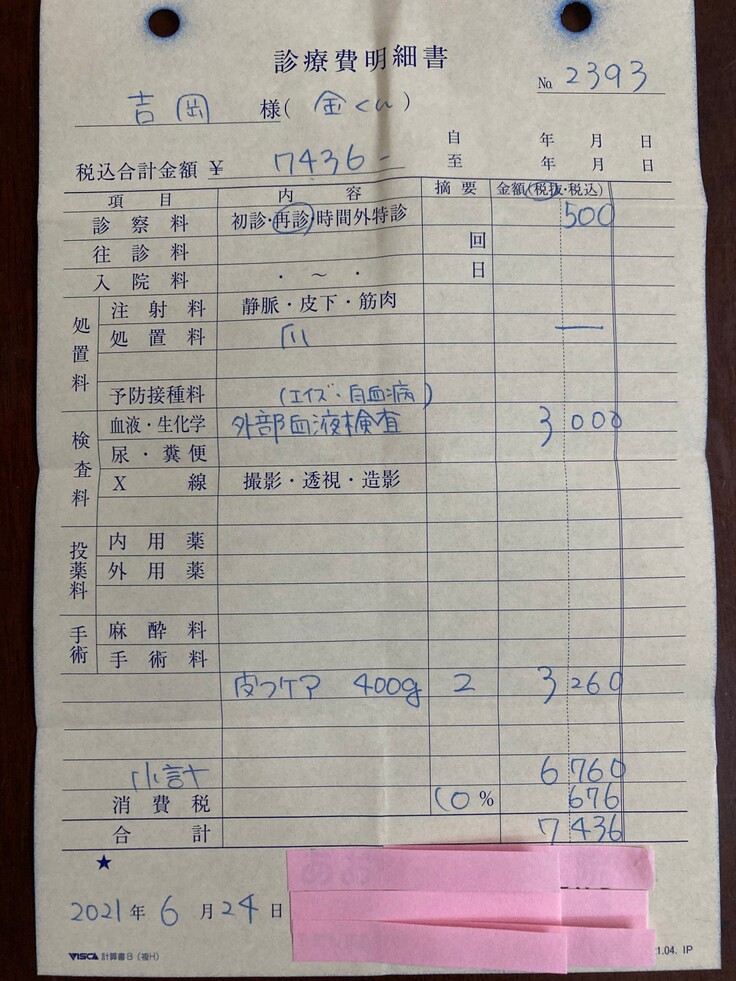 診療費明細書
No. 2393
吉岡 様(金くん)
自 年 月 日
税込合計金額 ¥ 7436-
至 年 月 日
項目 内容 摘要 金額(税抜・税込)
診察料 初診・再診・時間外特診 500
往診料 回
入院料 ・ ~ ・ 日
処置料
注射料 静脈・皮下・筋肉
処置料 爪 —
予防接種料 (エイズ・白血病)
検査料
血液・生化学 外部血液検査 3000
尿・糞便
X線 撮影・透視・造影
投薬料
内用薬
外用薬
手術
麻酔料
手術料
皮フケア 400g 2 3260
小計 6760
消費税 10% 676
合計 7436
★
2021年6月24日
VISCA 計算書B(複H)
1.04. IP